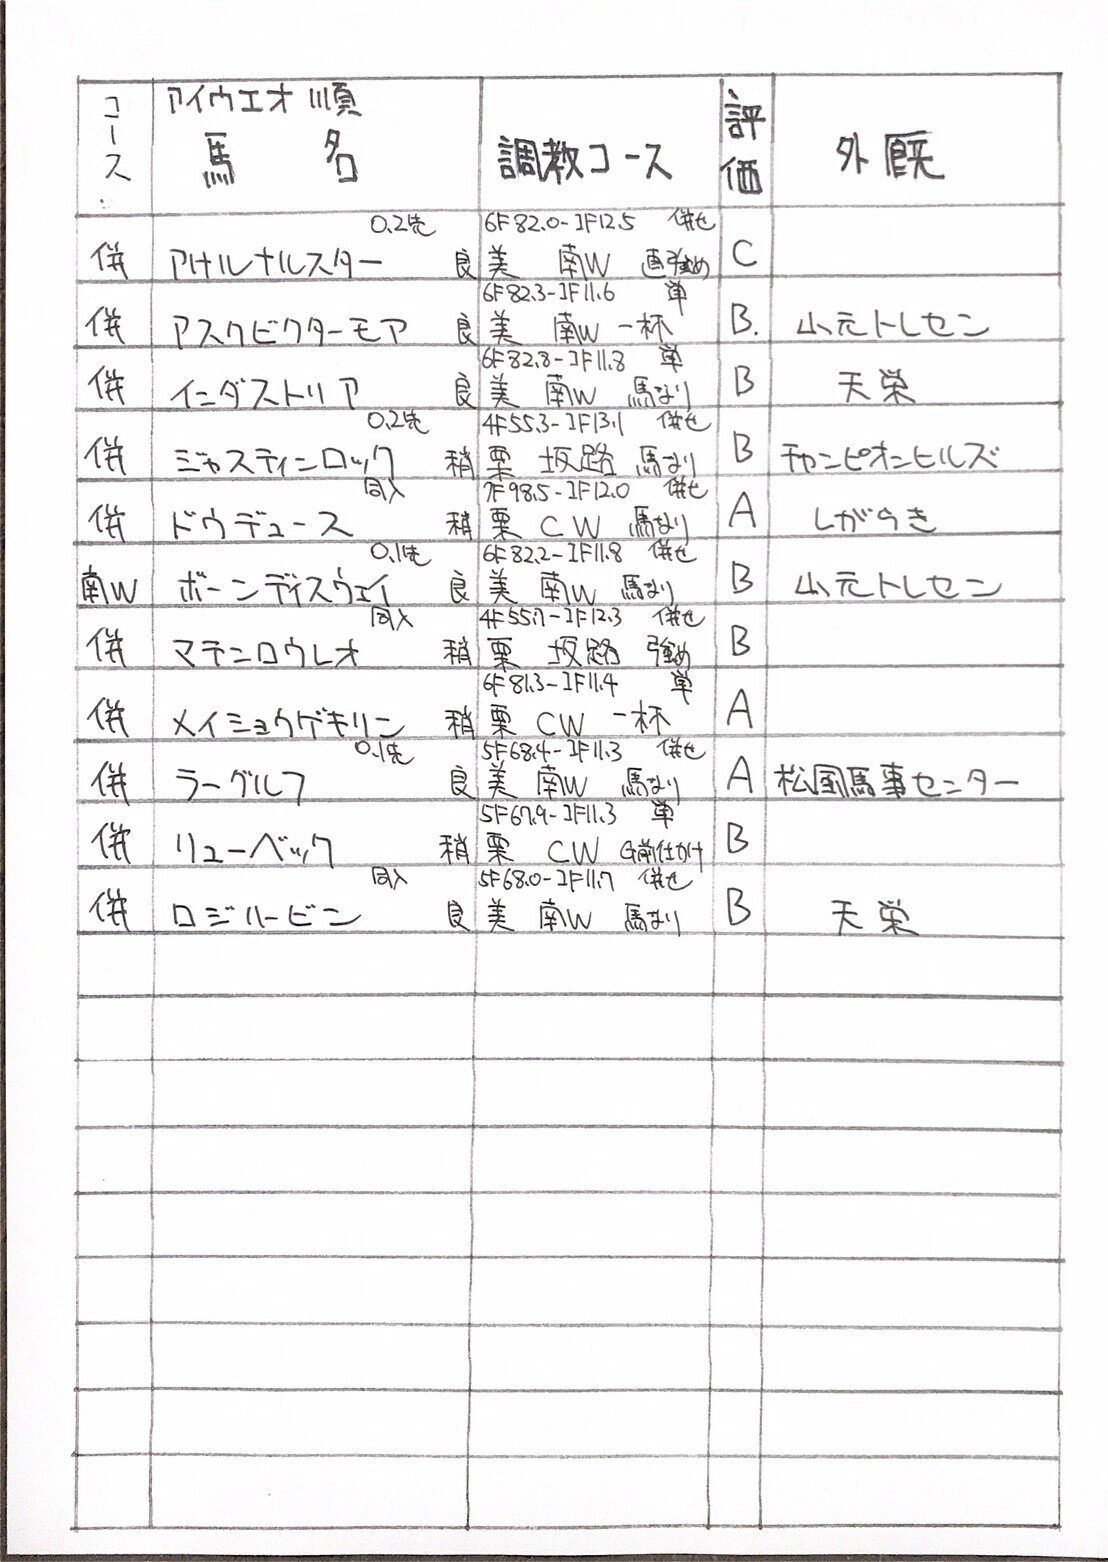 コース
アイウエオ順
馬名
調教コース
評価
外厩
0.2先 6F82.0-1F12.5 併せ
併 アケルナルスター 良 美 南W 直強め C
6F82.3-1F11.6 単
併 アスクビクターモア 良 美 南W 一杯 B. 山元トレセン
6F82.8-1F11.8 単
併 インダストリア 良 美 南W 馬なり B 天栄
0.2先 4F55.3-1F13.1 併せ
併 ジャスティンロック 稍 栗 坂路 馬なり B チャンピオンヒルズ
同入 7F98.5-1F12.0 併せ
併 ドウデュース 稍 栗 CW 馬なり A しがらき
0.1先 6F82.2-1F11.8 併せ
南W ボーンディスウェイ 良 美 南W 馬なり B 山元トレセン
同入 4F55.7-1F12.3 併せ
併 マテンロウレオ 稍 栗 坂路 強め B
6F81.3-1F11.4 単
併 メイショウゲキリン 稍 栗 CW 一杯 A
0.1先 5F68.4-1F11.3 併せ
併 ラーグルフ 良 美 南W 馬なり A 松風馬事センター
5F67.9-1F11.3 単
併 リューベック 稍 栗 CW G前仕かけ B
同入 5F68.0-1F11.7 併せ
併 ロジハービン 良 美 南W 馬なり B 天栄